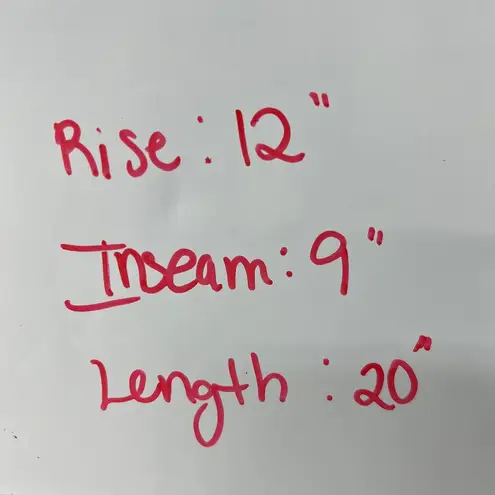 Rise: 12"
Inseam: 9"
Length: 20"